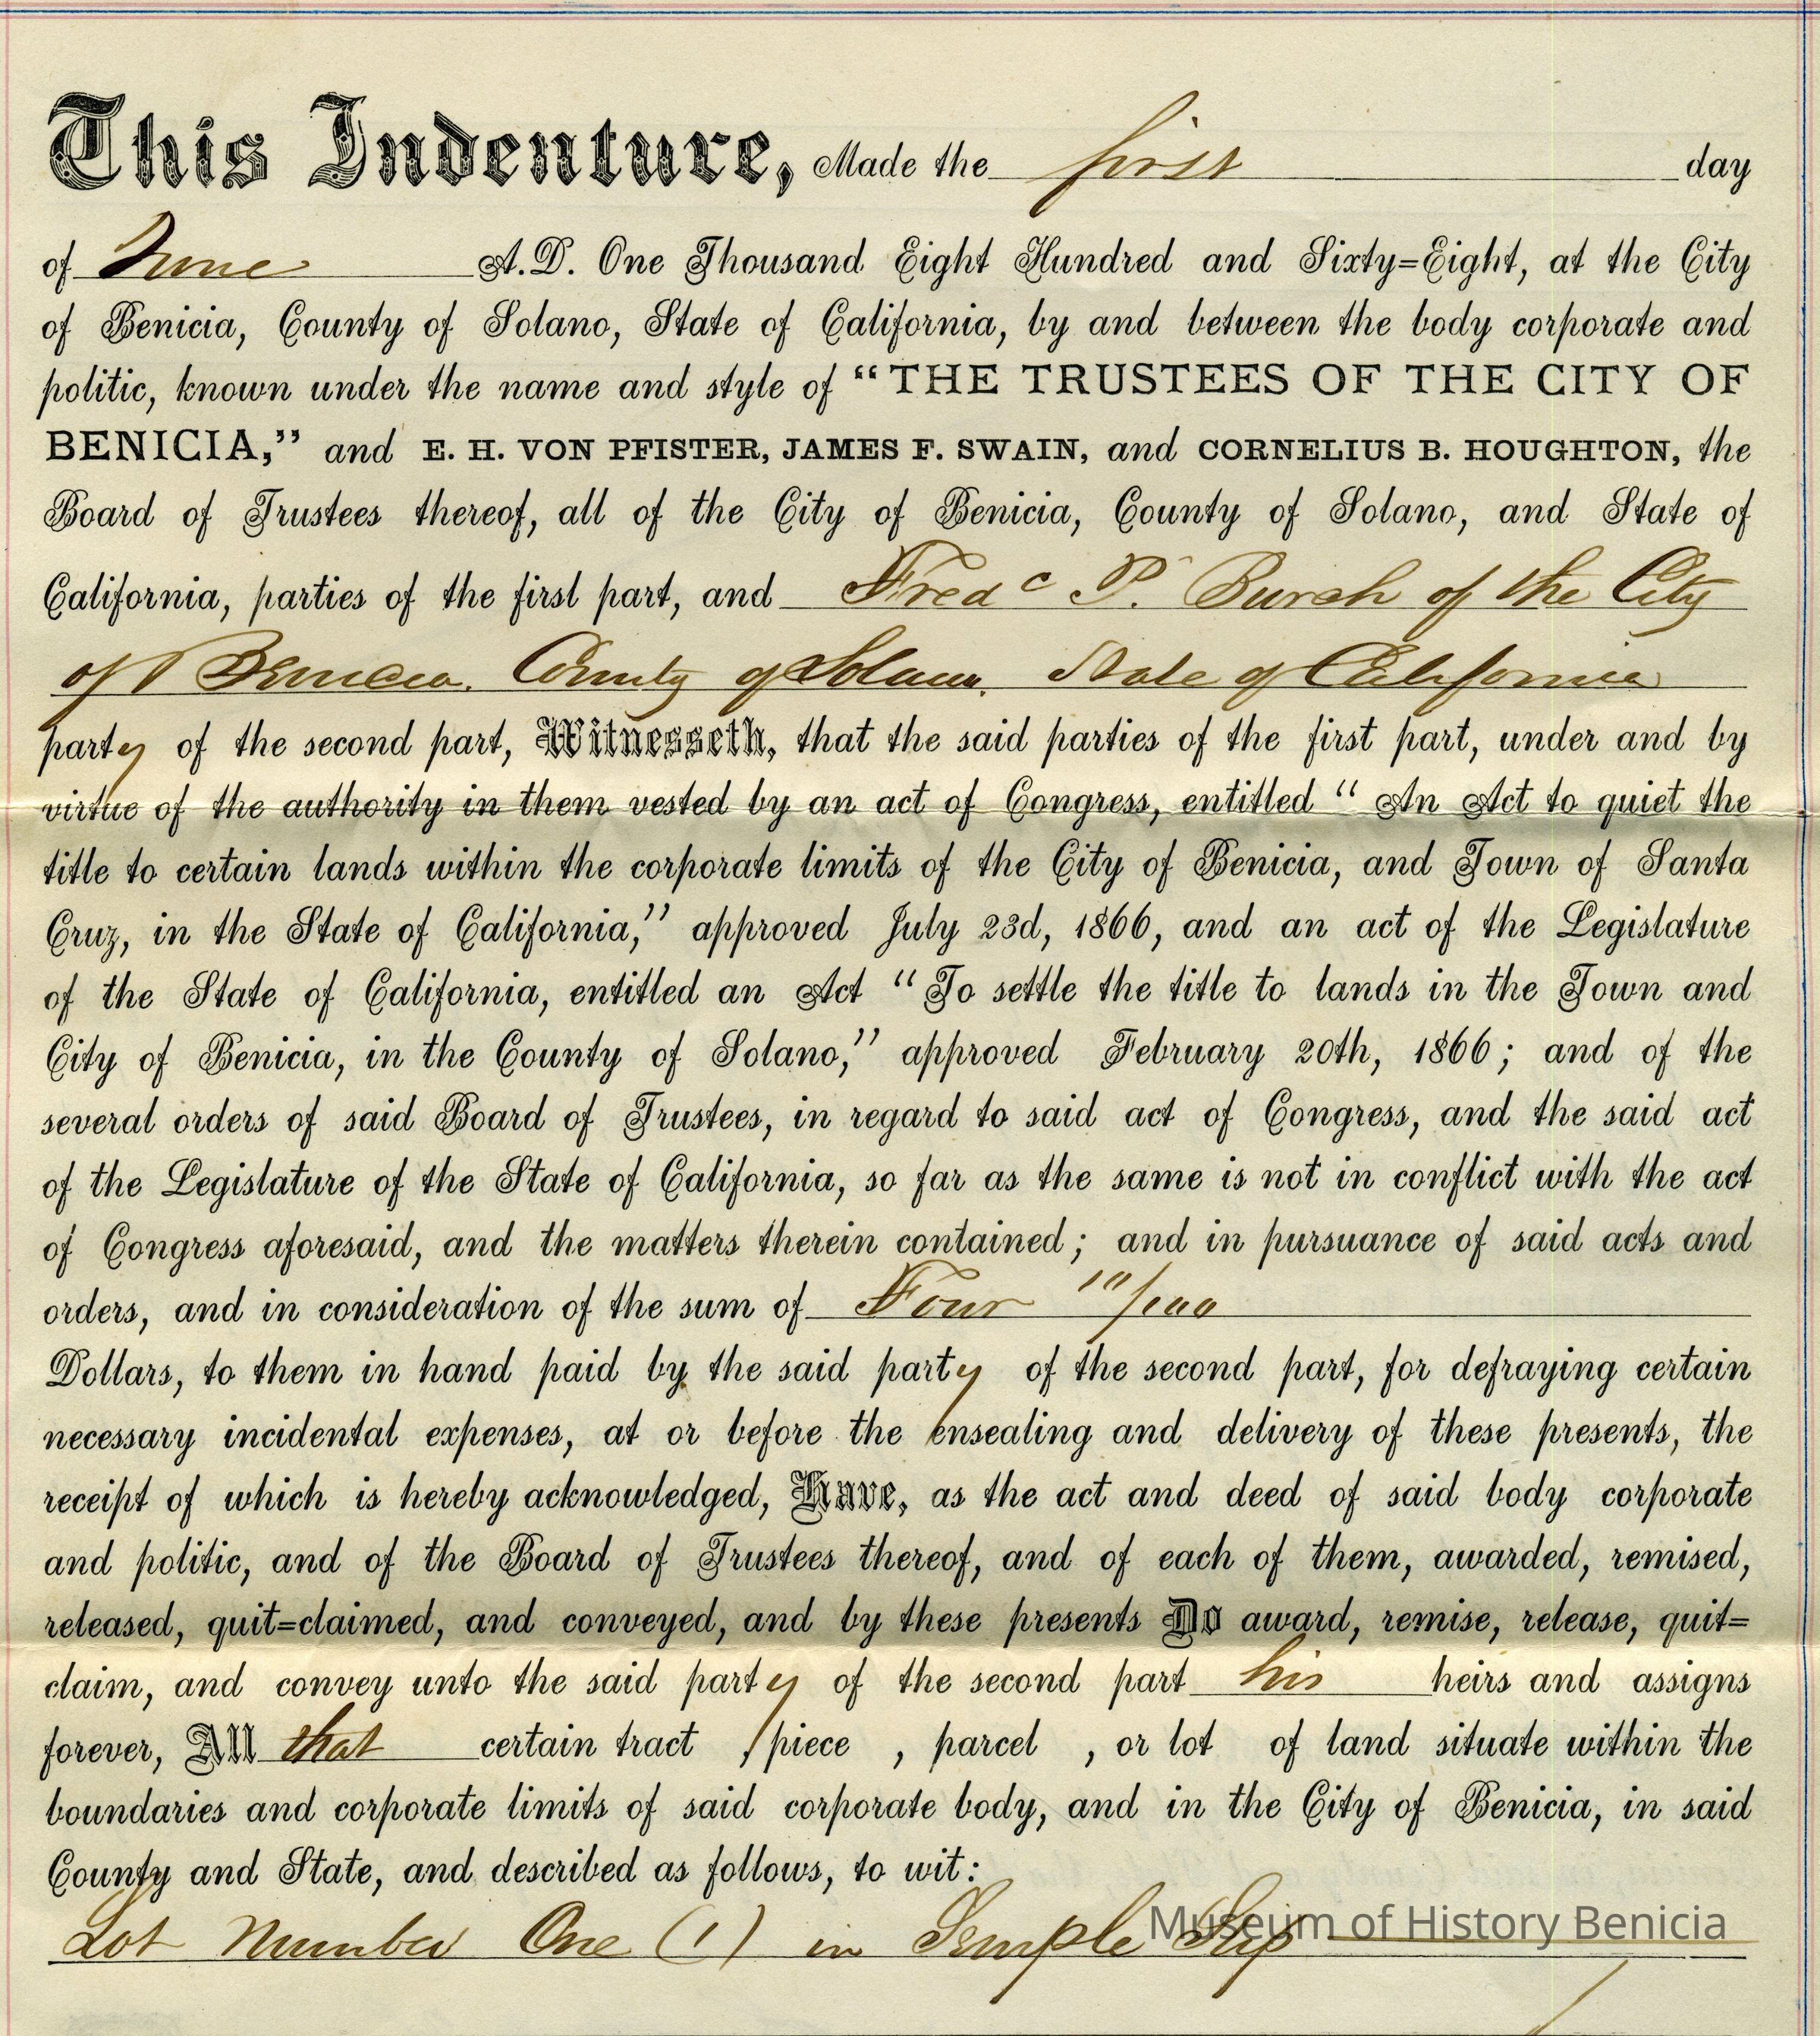 This Indenture, Made the first day
of June A. D. One Thousand Eight Hundred and Sixty=Eight, at the City
of Benicia, County of Solano, State of California, by and between the body corporate and
politic, known under the name and style of “THE TRUSTEES OF THE CITY OF
BENICIA,” and E. H. VON PFISTER, JAMES F. SWAIN, and CORNELIUS B. HOUGHTON, the
Board of Trustees thereof, all of the City of Benicia, County of Solano, and State of
California, parties of the first part, and P. Bursh of the City
of Benicia. County of Solano. State of California
party of the second part, Witnesseth, that the said parties of the first part, under and by
virtue of the authority in them vested by an act of Congress, entitled “ An Act to quiet the
title to certain lands within the corporate limits of the City of Benicia, and Town of Santa
Cruz, in the State of California,” approved July 23d, 1866, and an act of the Legislature
of the State of California, entitled an Act “ To settle the title to lands in the Town and
City of Benicia, in the County of Solano,” approved February 20th, 1866; and of the
several orders of said Board of Trustees, in regard to said act of Congress, and the said act
of the Legislature of the State of California, so far as the same is not in conflict with the act
of Congress aforesaid, and the matters therein contained; and in pursuance of said acts and
orders, and in consideration of the sum of Four
Dollars, to them in hand paid by the said party of the second part, for defraying certain
necessary incidental expenses, at or before the ensealing and delivery of these presents, the
receipt of which is hereby acknowledged, Have, as the act and deed of said body corporate
and politic, and of the Board of Trustees thereof, and of each of them, awarded, remised,
released, quit=claimed, and conveyed, and by these presents Do award, remise, release, quit=
claim, and convey unto the said party of the second part his heirs and assigns
forever, All that certain tract , piece , parcel , or lot of land situate within the
boundaries and corporate limits of said corporate body, and in the City of Benicia, in said
County and State, and described as follows, to wit:
Lot Number One (1) in Semple Slip
Museum of History Benicia